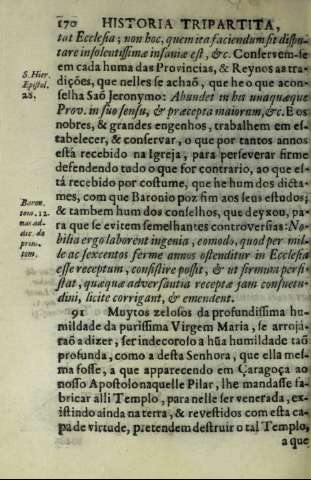 170 HISTORIA TRIPARTITA,
tat Ecclesia; non hoc, quem ita faciendum sit dispu-
tare insolentissimæ insaniæ est, &c. Conservem-se
em cada huma das Provincias, & Reynos as tra-
S. Hier. dições, que nelles se achaõ, que he o que acon-
Epistol. selha Saõ Jeronymo: Abundet in his unaquæque
28. Prov. in suo sensu, & præcepta maiorum, &c. E os
nobres, & grandes engenhos, trabalhem em es-
tabelecer, & conservar, o que por tantos annos
está recebido na Igreja, para perseverar firme
defendendo tudo o que for contrario, ao que es-
tá recebido por costume, que he hum dos dicta-
Baron. mes, com que Baronio poz fim aos seus estudos;
tom. 12. & tambem hum dos conselhos, que deyxou, pa-
in ra que se evitem semelhantes controversias: No-
dic. do bilia ergo laborent ingenia, eo modo, quod per mil-
prin- le ac sexcentos ferme annos ostenditur in Ecclesia
tom. esse receptum, consistere possit, & ut firmum persi-
stat, quæquæ adversantia receptæ jam consuetu-
dini, licite corrigant, & emendent.
91 Muytos zelosos da profundissima hu-
mildade da purissima Virgem Maria, se arroja-
raõ a dizer, ser indecoroso a hũa humildade taõ
profunda, como a desta Senhora, que ella mes-
ma fosse, a que apparecendo em Çaragoça ao
nosso Apostolo naquelle Pilar, lhe mandasse fa-
bricar alli Templo, para nelle ser venerada, ex-
istindo ainda na terra, & revestidos com esta ca-
pa de virtude, pretendem destruir o tal Templo,
a que